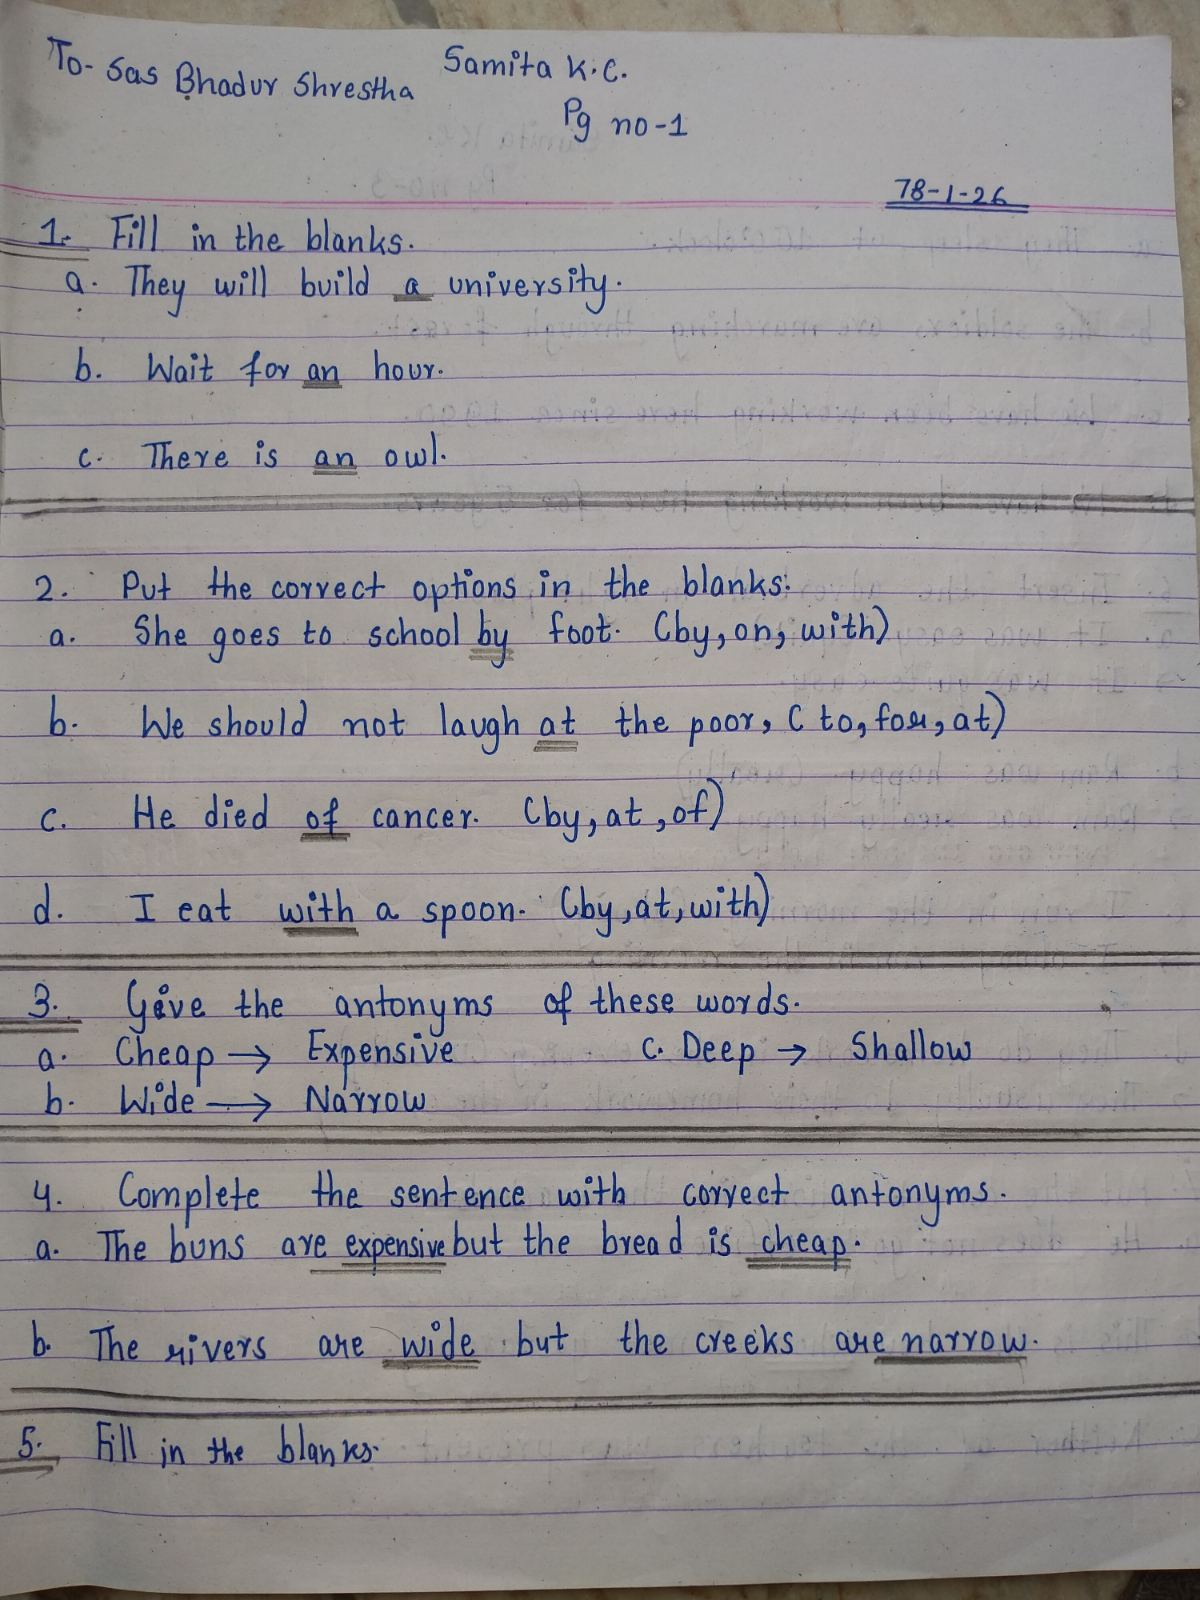 To- Sas Bhadur Shrestha
Samita K.C.
Pg no-1
78-1-26
1. Fill in the blanks.
a. They will build a university.
b. Wait for an hour.
c. There is an owl.
2. Put the correct options in the blanks:
a. She goes to school by foot. (by, on, with)
b. We should not laugh at the poor, (to, for, at)
c. He died of cancer. (by, at, of)
d. I eat with a spoon. (by, at, with)
3. Give the antonyms of these words.
a. Cheap → Expensive c. Deep → Shallow
b. Wide → Narrow
4. Complete the sentence with correct antonyms.
a. The buns are expensive but the bread is cheap.
b. The rivers are wide but the creeks are narrow.
5. Fill in the blanks.